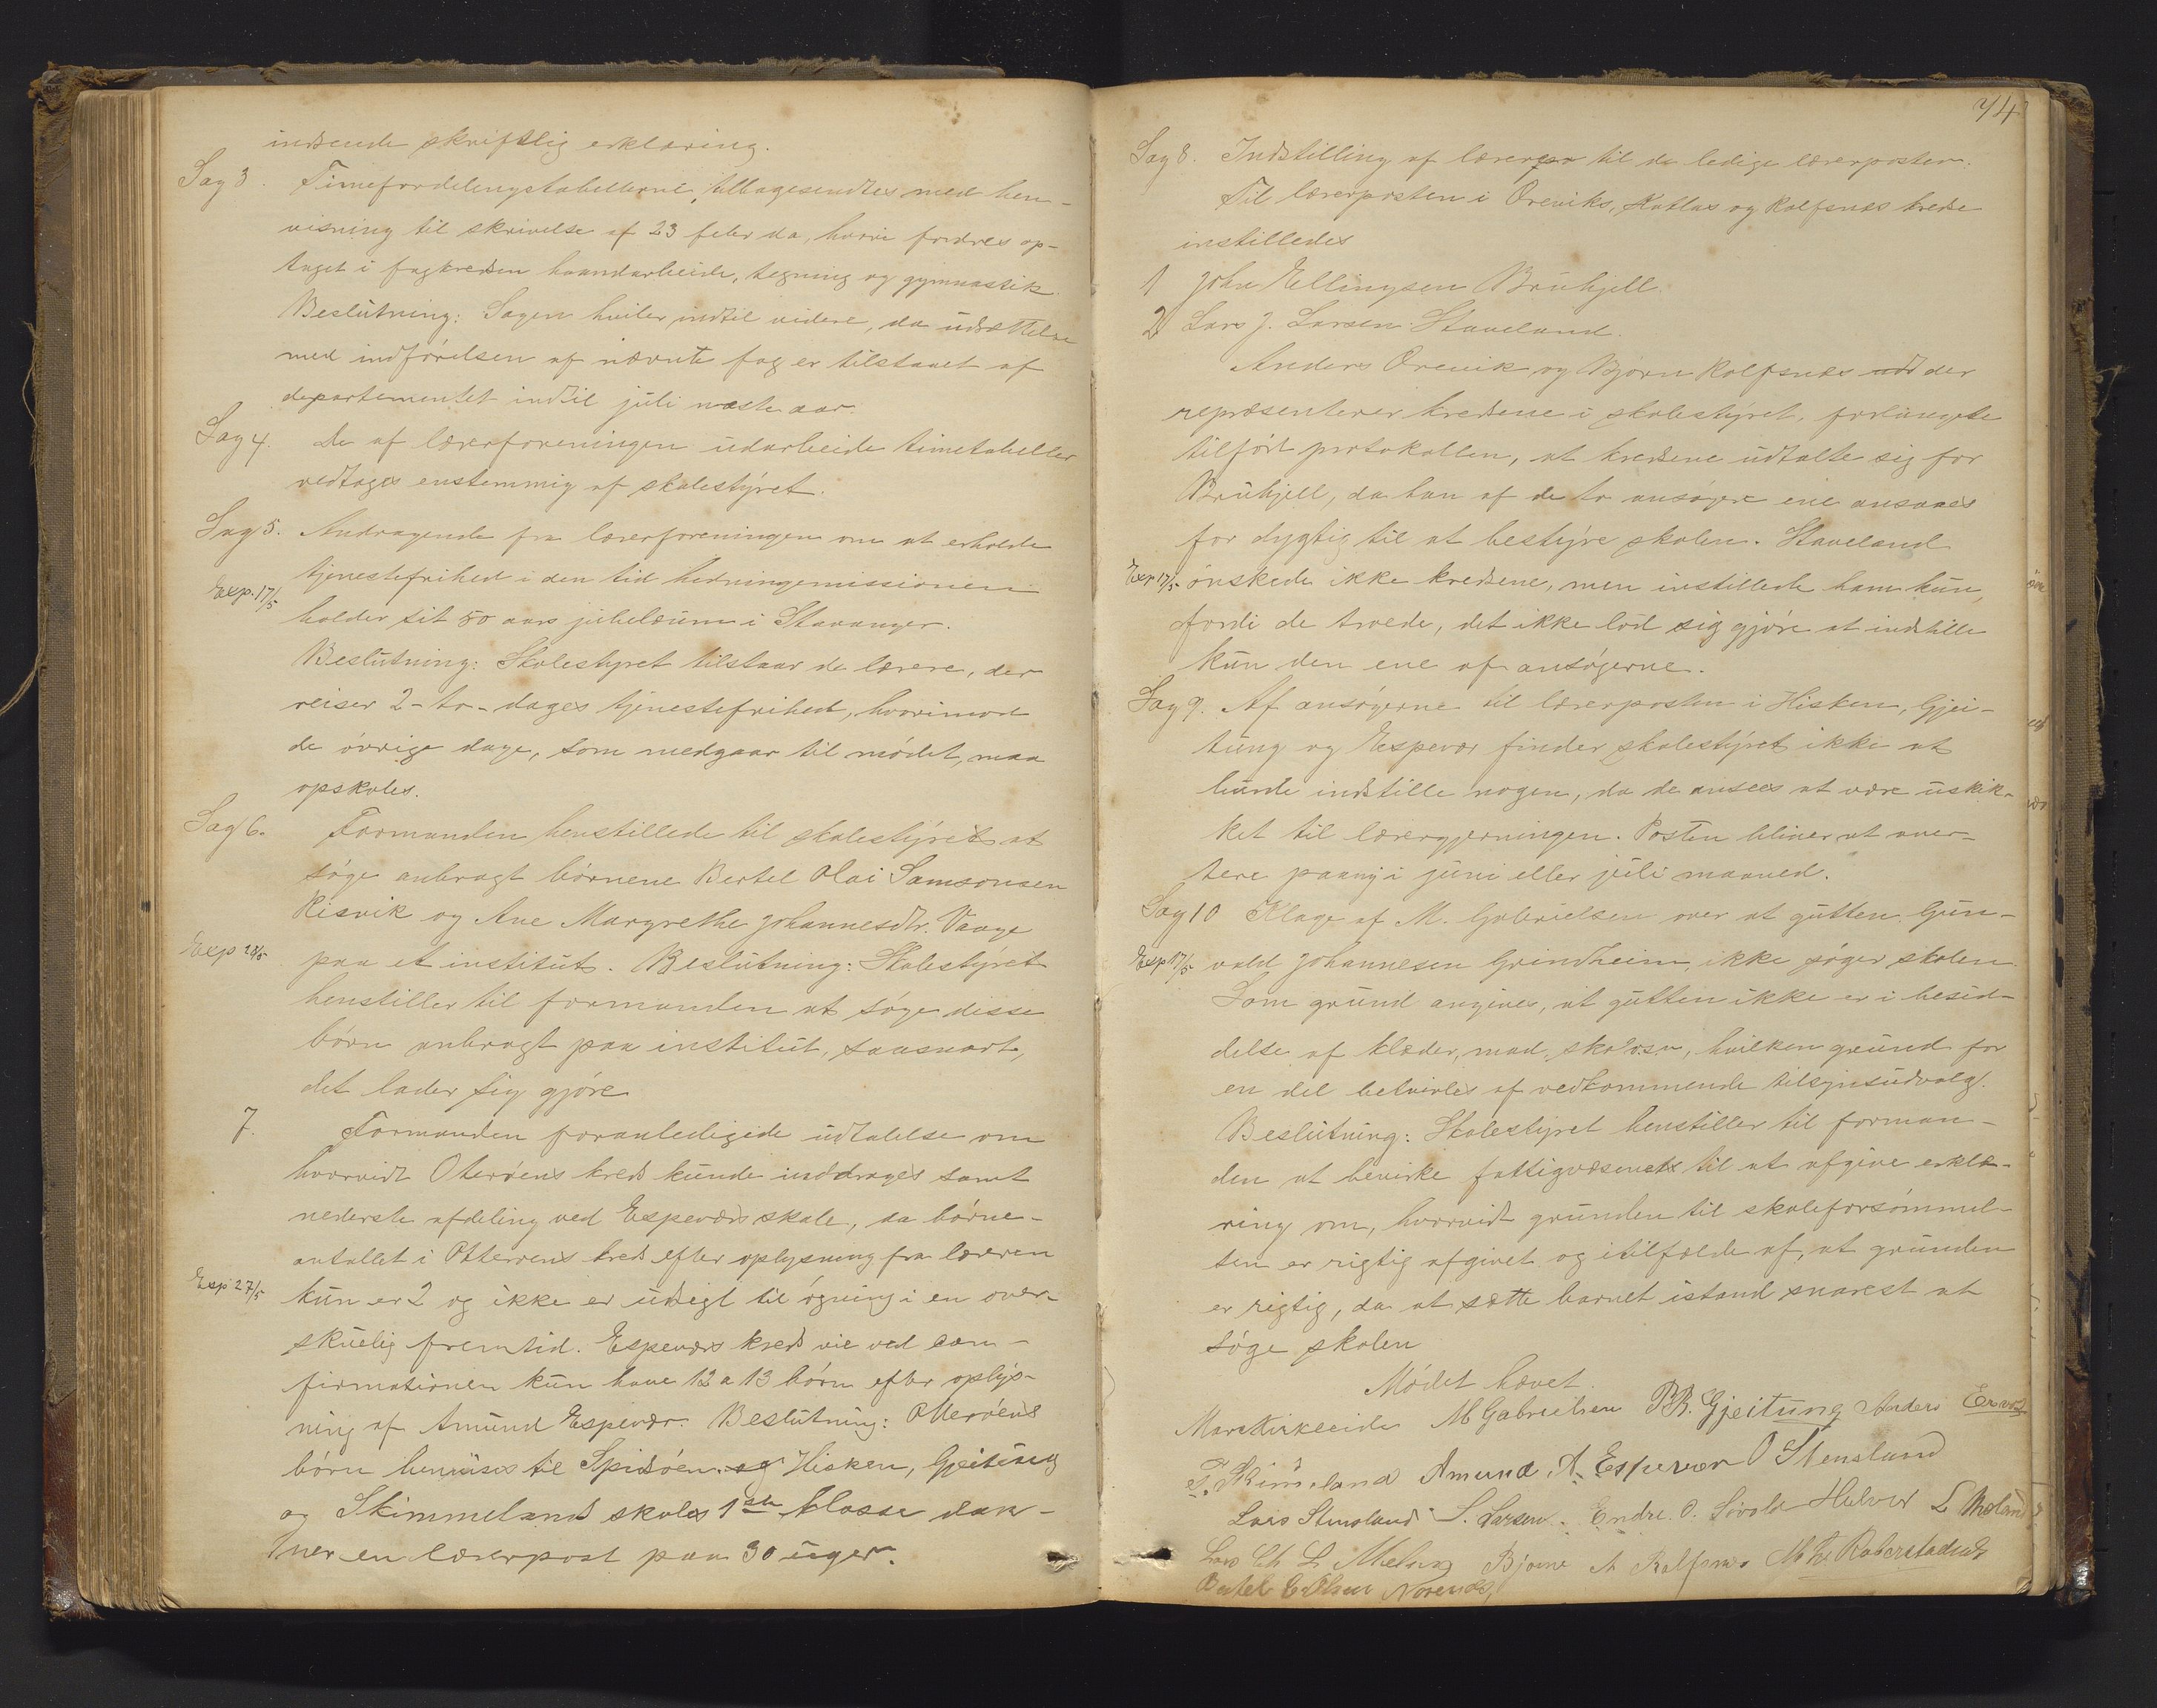 indsende skriftlig erklæring.
Sag 3. Timefordelingstabellerne tilbagesendtes med hen-
visning til skrivelse af 23 feb. d.a., hvori fordres op-
taget i fagkredsen haandarbeide, tegning og gymnastik.
Beslutning: Sagen hviler indtil videre, da udsættelse
med indførelsen af nævnte fag er tilstaaet af
departementet indtil juli næste aar.
Sag 4. De af lærerforeningen udarbeide timetabeller
vedtages enstemmig af skolestyret.
Sag 5. Andragende fra lærerforeningen om at erholde
Exp. 17/5 tjenestefrihed i den tid hedningemissionen
holder sit 50 aars jubelæum i Stavanger.
Beslutning: Skolestyret tilstaar de lærere, der
reiser 2 - to - dages tjenestefrihed, hvorimod
de øvrige dage, som medgaar til mødet, maa
opskoles.
Sag 6. Formanden henstillede til skolestyret at
søge anbragt børnene Bertel Olai Samsonsen
Risvik og Ane Margrethe Johannesdtr. Vaage
Exp 28/5 paa et institut. Beslutning: Skolestyret
henstiller til formanden at søge disse
børn anbragt paa institut, saasnart,
det lader sig gjøre
7. Formanden foranledigede udtalelse om
hvorvidt Oterøens kreds kunde inddrages samt
nederste afdeling ved Espeværs skole, da børne-
antallet i Otterøens kreds efter oplysning fra læreren
Exp 27/5 kun er 2 og ikke er udsigt til øgning i en over-
skuelig fremtid. Espeværs kreds vil ved con-
firmationen kun have 12 a 13 børn efter oplys-
ning af Amund Espevær. Beslutning: Otterøens
børn henvises til Spidsøen. og Hisken, Gjeitung
og Skimmelands skoles 1ste klasse dan-
ner en lærerpost paa 30 uger.
74
Sag 8. Indstilling af lærerpo til de ledige lærerposter.
Til lærerposten i Øreviks, Katlas og Rolfsnæs kredse
instilledes
1 John Ellingsen Bruhjell.
2 Lars J. Larsen Staveland.
Anders Ørevik og Bjørn Rolfsnæs udt der
repræsenterer kredsene i skolestyret, forlangte
tilført protokollen, at kredsene udtalte sig for
Bruhjell, da han af de to ansøgere ene ansaaes
for dygtig til at bestyre skolen. Staveland
Exp 17/5 ønskede ikke kredsene, men instillede ham kun,
fordi de troede, det ikke lod sig gjøre at indstille
kun den ene af ansøgerne.
Sag 9. Af ansøgerne til lærerposten i Hisken, Gjei-
tung og Espevær finder skolestyret ikke at
burde indstille nogen, da de ansees at være uskik-
ket til lærergjerningen. Posten bliver at aver-
tere paany i juni eller juli maaned.
Sag 10 Klage af M. Gabrielsen over at gutten Gun-
Exp 17/5 vald Johannesen Grindheim, ikke søger skolen.
Som grund angives, at gutten ikke er i besid-
delse af klæder, mad, skolosn, hvilken grund for
en del betvivles af vedkommende tilsynsudvalg.
Beslutning: Skolestyret henstiller til forman-
den at bevirke fattigvæsenets til at afgive erklæ-
ring om, hvorvidt grunden til skoleforsømmel-
sen er rigtig afgivet og i tilfælde af, at grunden
er rigtig, da at sætte barnet istand snarest at
søge skolen
Mødet hævet.
M Gabrielsen P.R. Gjeitung Anders
Amund A. Espevær O Stensland
Lars Stensland S. Larsen. Endre O. L Meland
Lars Bjørn Rolfsnes
Bertel